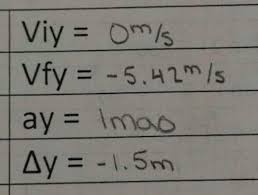 Viy = 0m/s
Vfy = -5.42m/s
ay = lmao
Δy = -1.5m